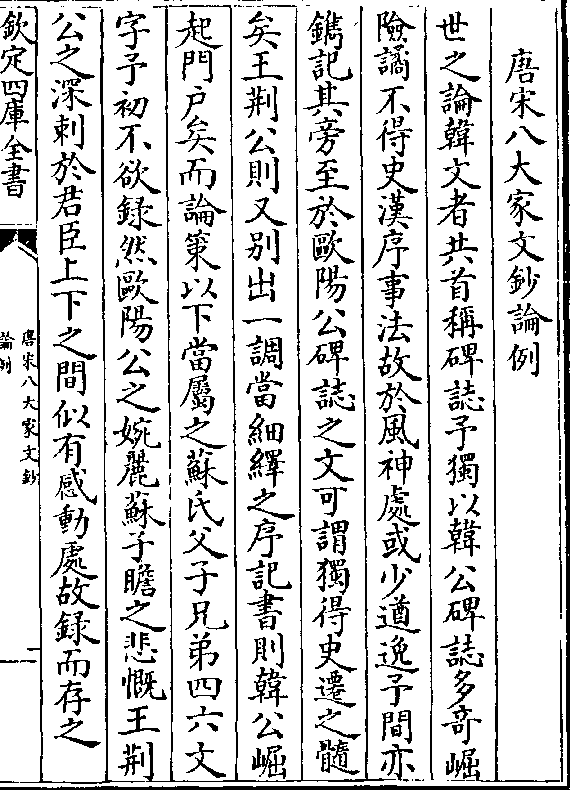 唐宋八大家文鈔論例
世之論韓文者共首稱碑誌予獨以韓公碑誌多奇崛
險譎不得史漢序事法故於風神處或少遒逸予間亦
鐫記其旁至於歐陽公碑誌之文可謂獨得史遷之髓
矣王荆公則又别出一調當細繹之序記書則韓公崛
起門户矣而論策以下當屬之蘇氏父子兄弟四六文
字予初不欲録然歐陽公之婉麗蘇子瞻之悲慨王荆
公之深刺於君臣上下之間似有感動處故録而存之
欽定四庫全書
唐宋八大家文鈔
論例
一